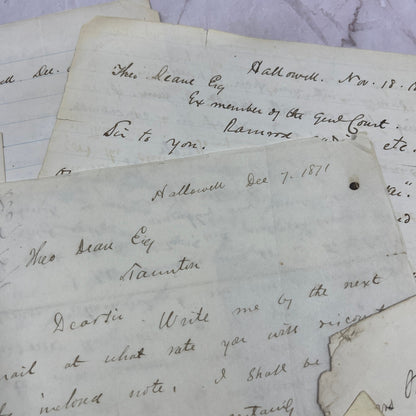 Dec.
Hallowell. Nov. 18. 18
Theo Deane Esq
Ex member of the Genl Court.
Ramrod etc.
Sir to you.
Hallowell Dec 7. 1871
Theo Deane Esq
Taunton
Dear Sir Write me by the next
mail at what rate you will discount
inclosed note. I shall be